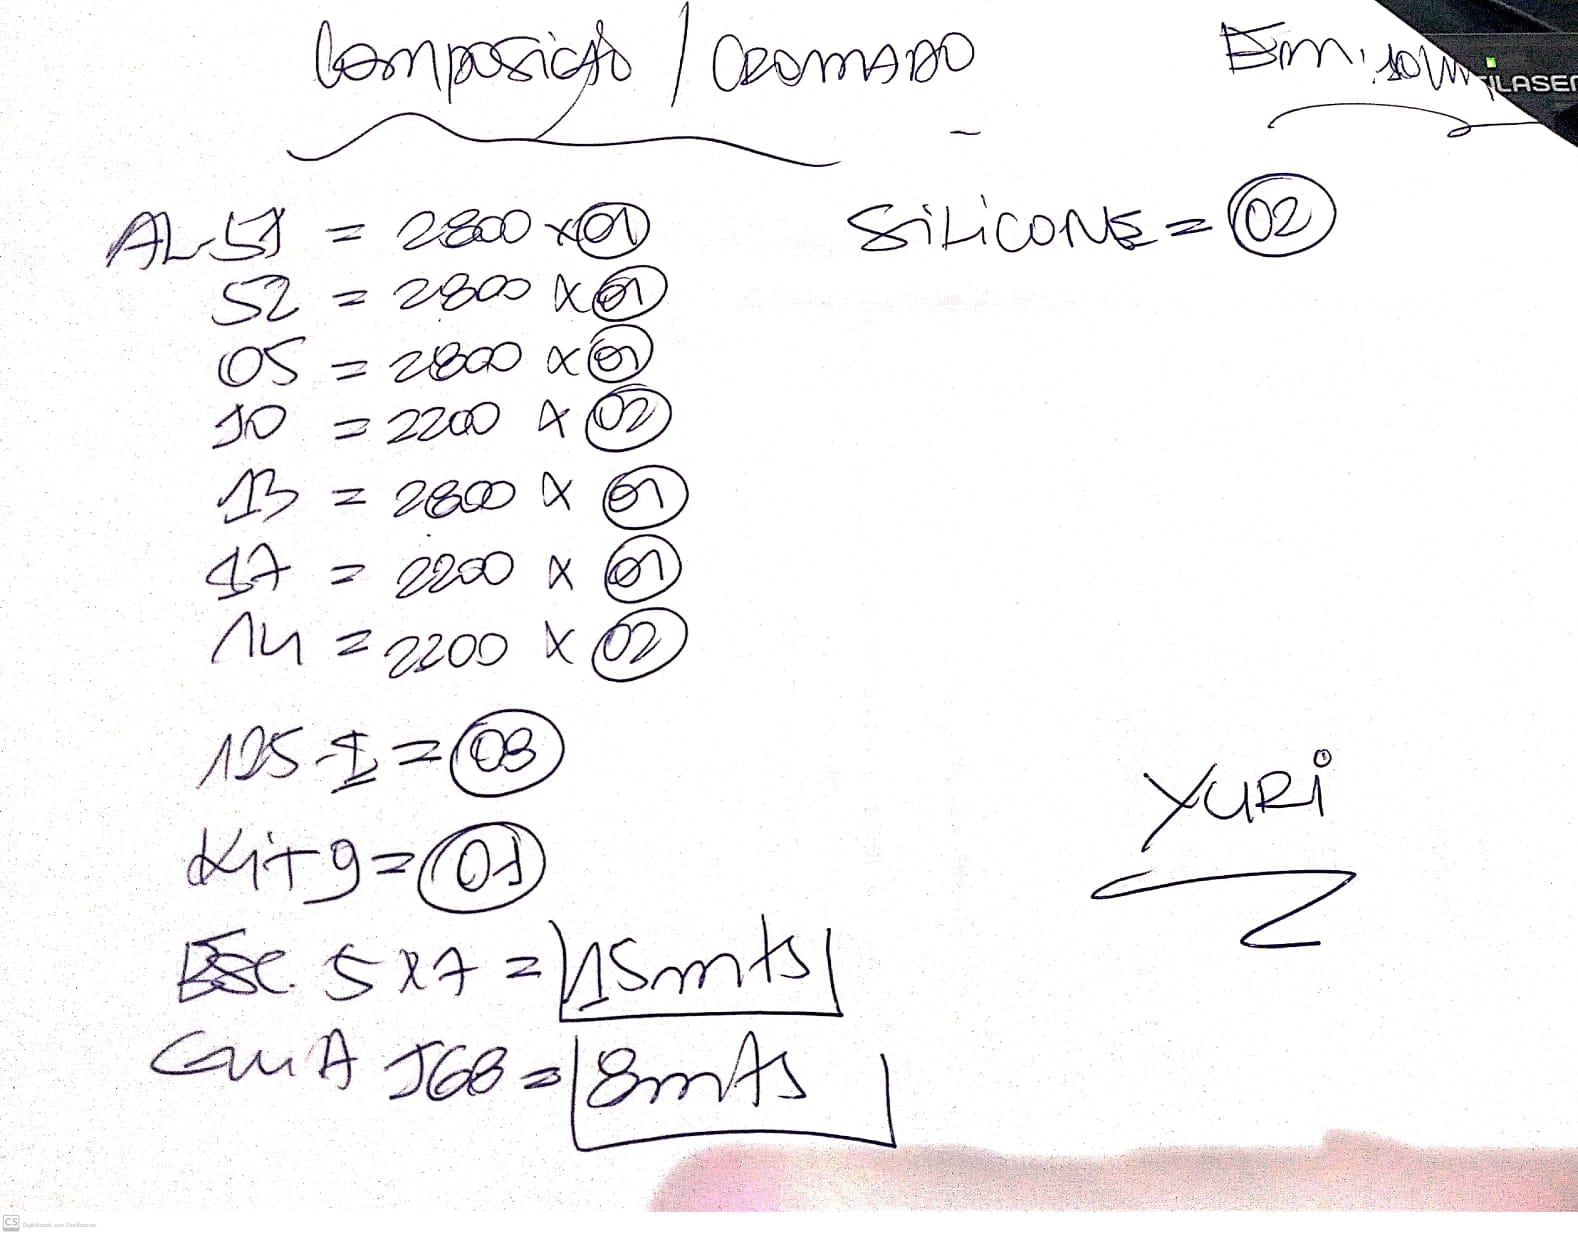 Composição / CROMADO
Em. 10mm
AL-51 = 2800 x 01
52 = 2800 x 01
05 = 2800 x 01
10 = 2200 x 02
13 = 2800 x 01
17 = 2200 x 01
14 = 2200 x 02
125-I = 08
Kit 9 = 01
ESC. 5x7 = 15mts
GUIA J68 = 8mts
SiLiCONE = 02
YURi
LASER
CS Digitalizado com CamScanner